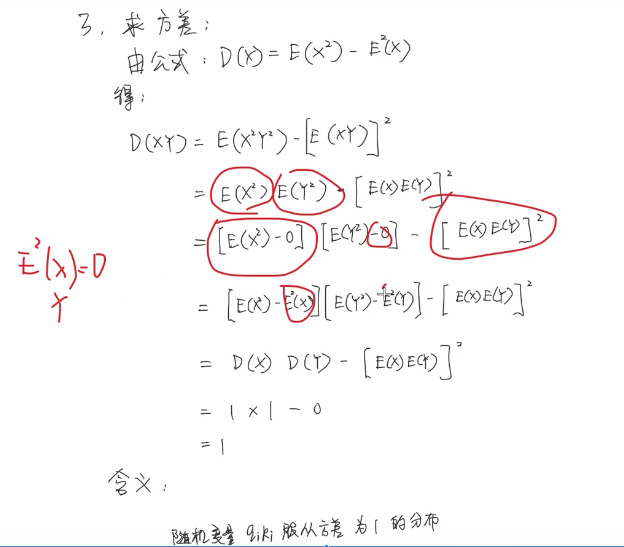 3. 求方差:
由公式: D(X) = E(X²) - E²(X)
得:
D(XY) = E(X²Y²) - [E(XY)]²
= E(X²) E(Y²) - [E(X)E(Y)]²
= [E(X²)-0] [E(Y²)-0] - [E(X)E(Y)]²
E²(X)=0
Y
= [E(X²)-E²(X)][E(Y²)-E²(Y)] - [E(X)E(Y)]²
= D(X) D(Y) - [E(X)E(Y)]²
= 1 × 1 - 0
= 1
含义:
随机变量 qiki 服从方差为1的分布